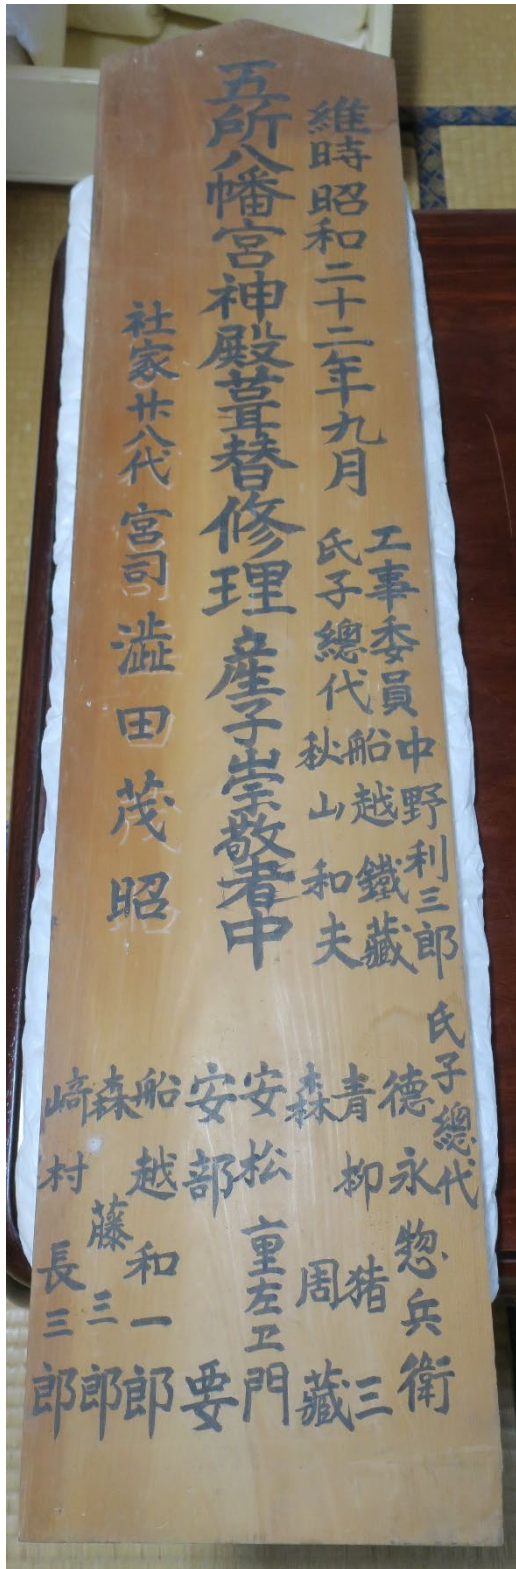 維時昭和二十二年九月
工事委員 中野利三郎
船越鐵藏
氏子總代 秋山和夫
五所八幡宮神殿葺替修理 産子崇敬者中
社家廿八代 宮司 澁田茂昭
氏子總代
德永惣兵衛
青柳猪三
森周藏
安松重左卫門
安部要
船越和一郎
森藤三郎
﨑村長三郎